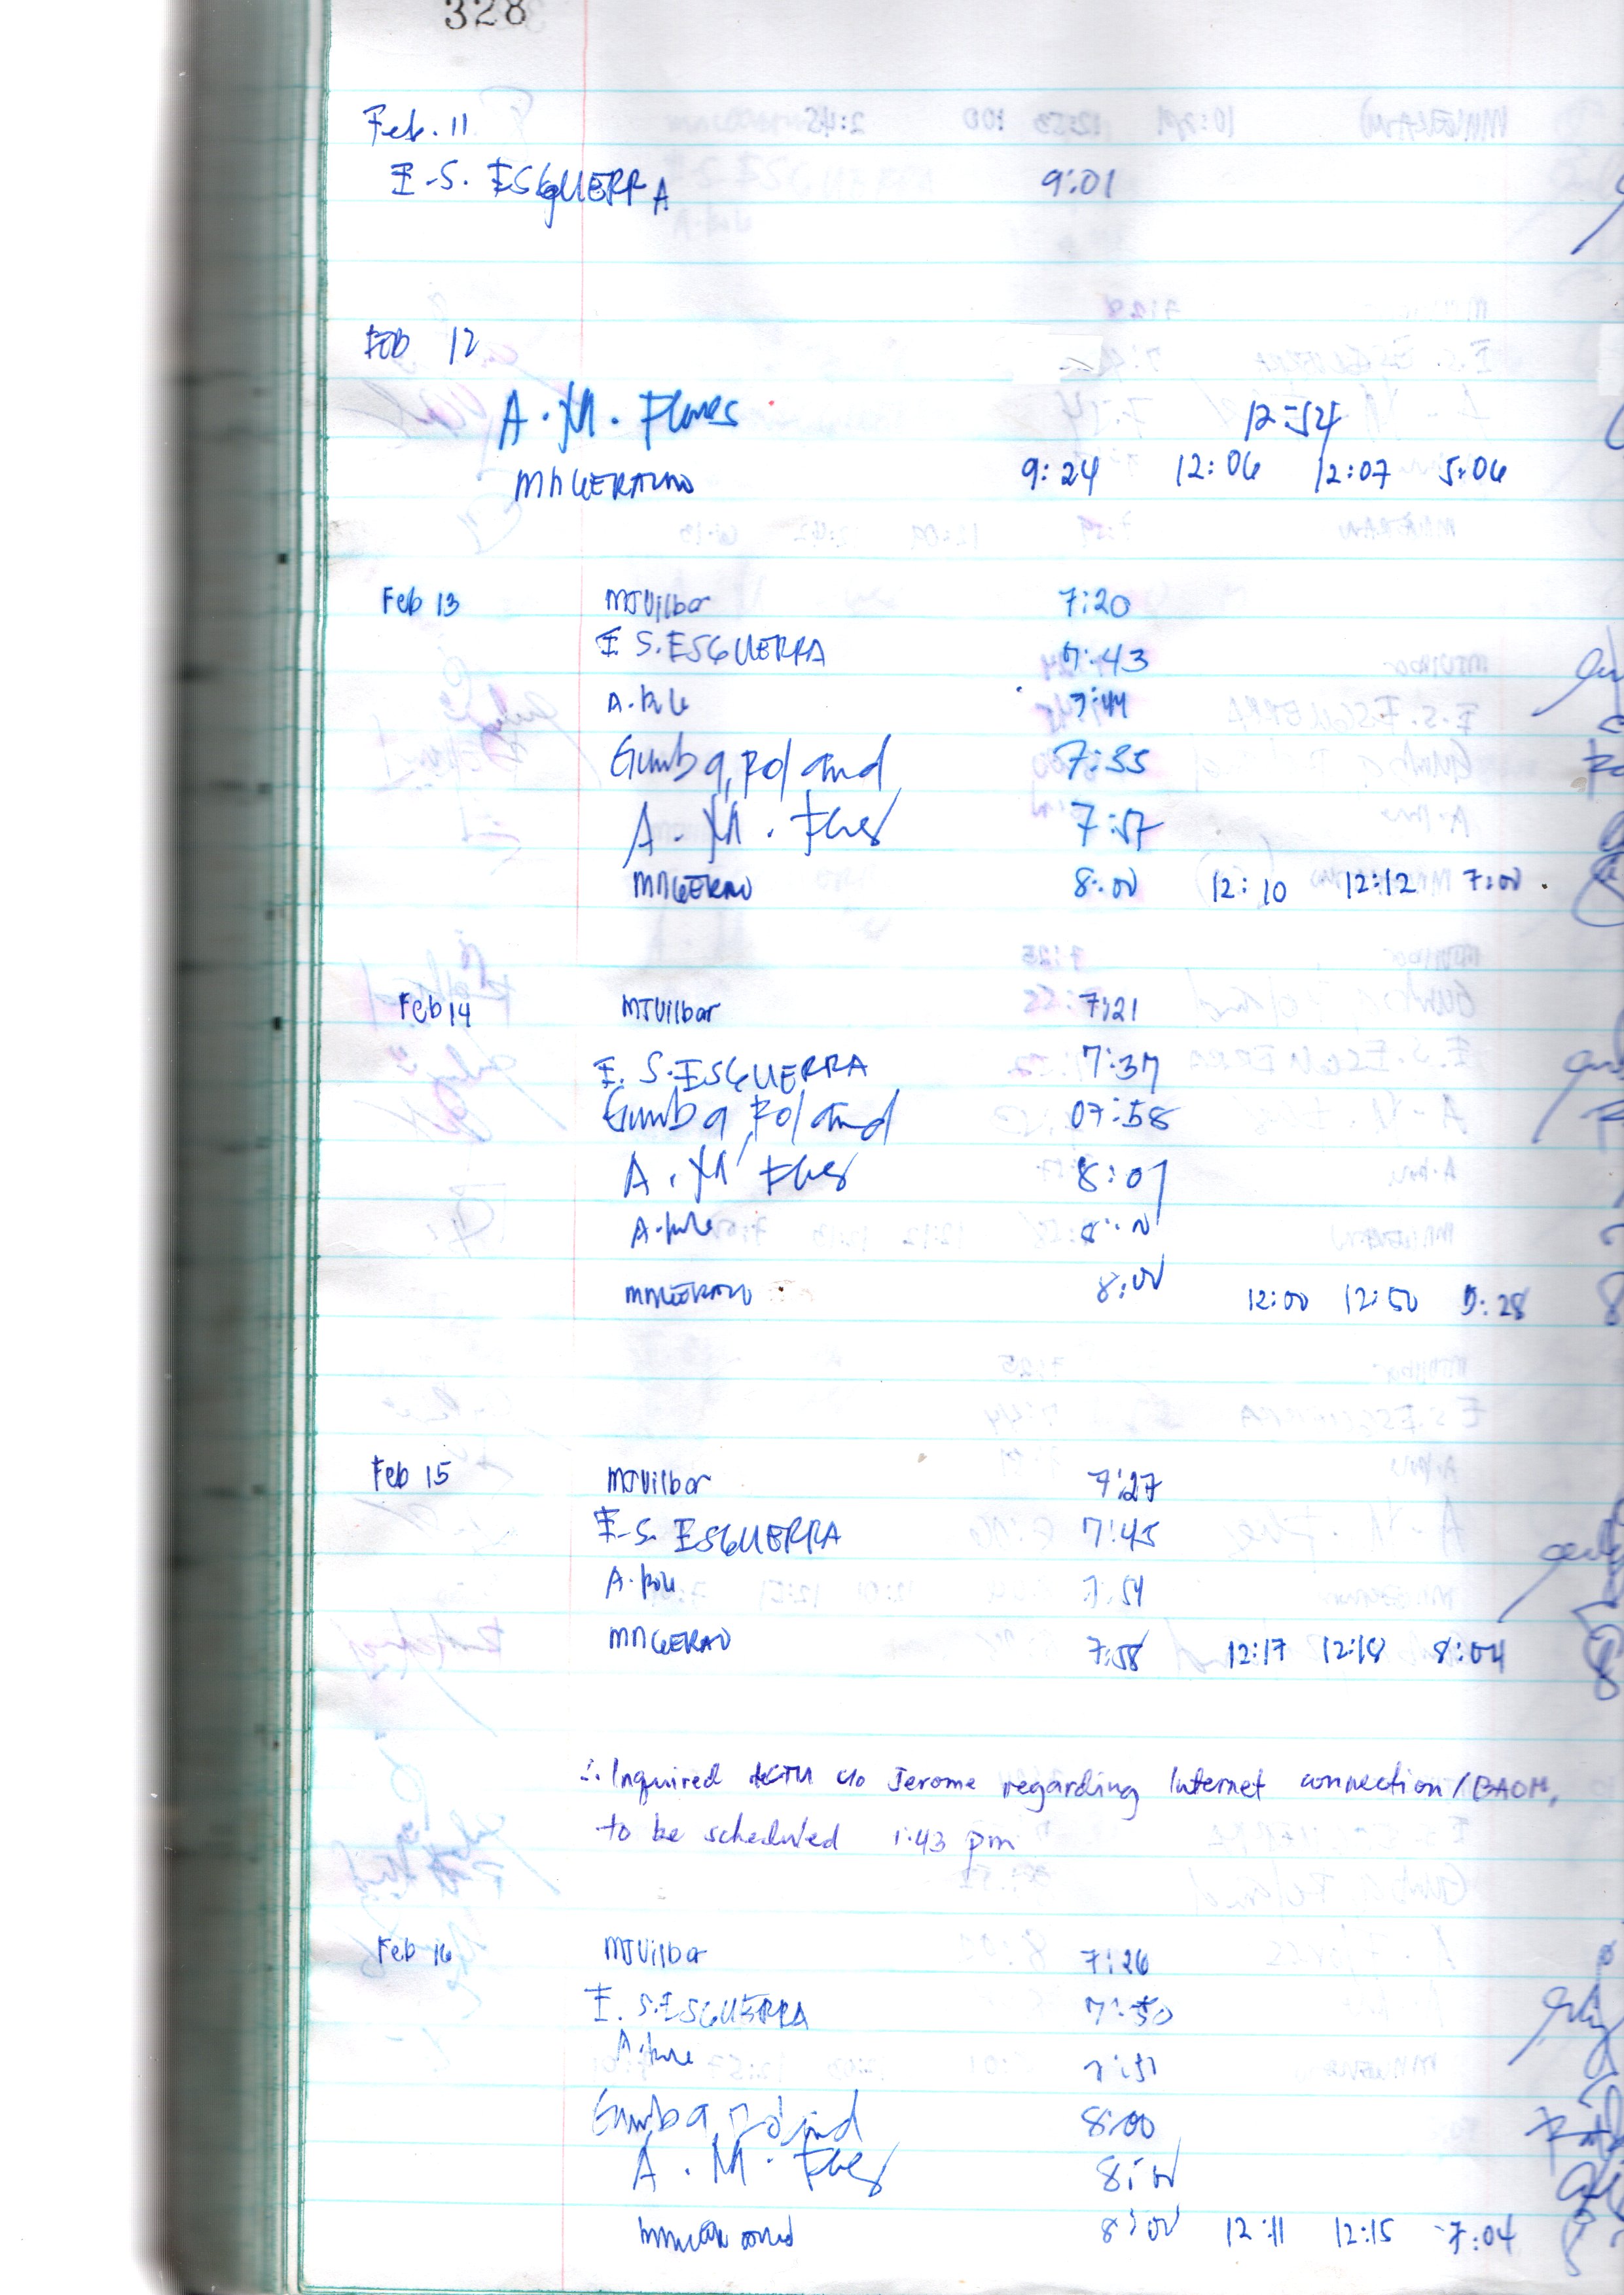 328
Feb. 11
E.S. ESGUERRA 9:01
Feb 12
A.M. Flores 12:54
9:24 12:06 12:07 5:06
Feb 13 MJVilbar 7:20
E S. ESGUERRA 7:43
A. 7:44
Gumba, Roland 7:55
A.M. Flores 7:57
8:00 12:10 12:12 7:00
Feb 14 MJVilbar 7:21
E. S. ESGUERRA 7:37
Gumba, Roland 07:58
A.M. Flores 8:01
A.
8:00 12:00 12:50 5:28
Feb 15 MJVilbar 7:27
E.S. ESGUERRA 7:45
A. 7:54
7:58 12:17 12:18 8:04
Inquired c/o Jerome regarding Internet connection/BAOM,
to be scheduled 1:43 pm
Feb 16 MJVilbar 7:26
E. S. ESGUERRA 7:50
A. 7:51
Gumba, Roland 8:00
A.M. Flores 8:00
8:00 12:11 12:15 7:04